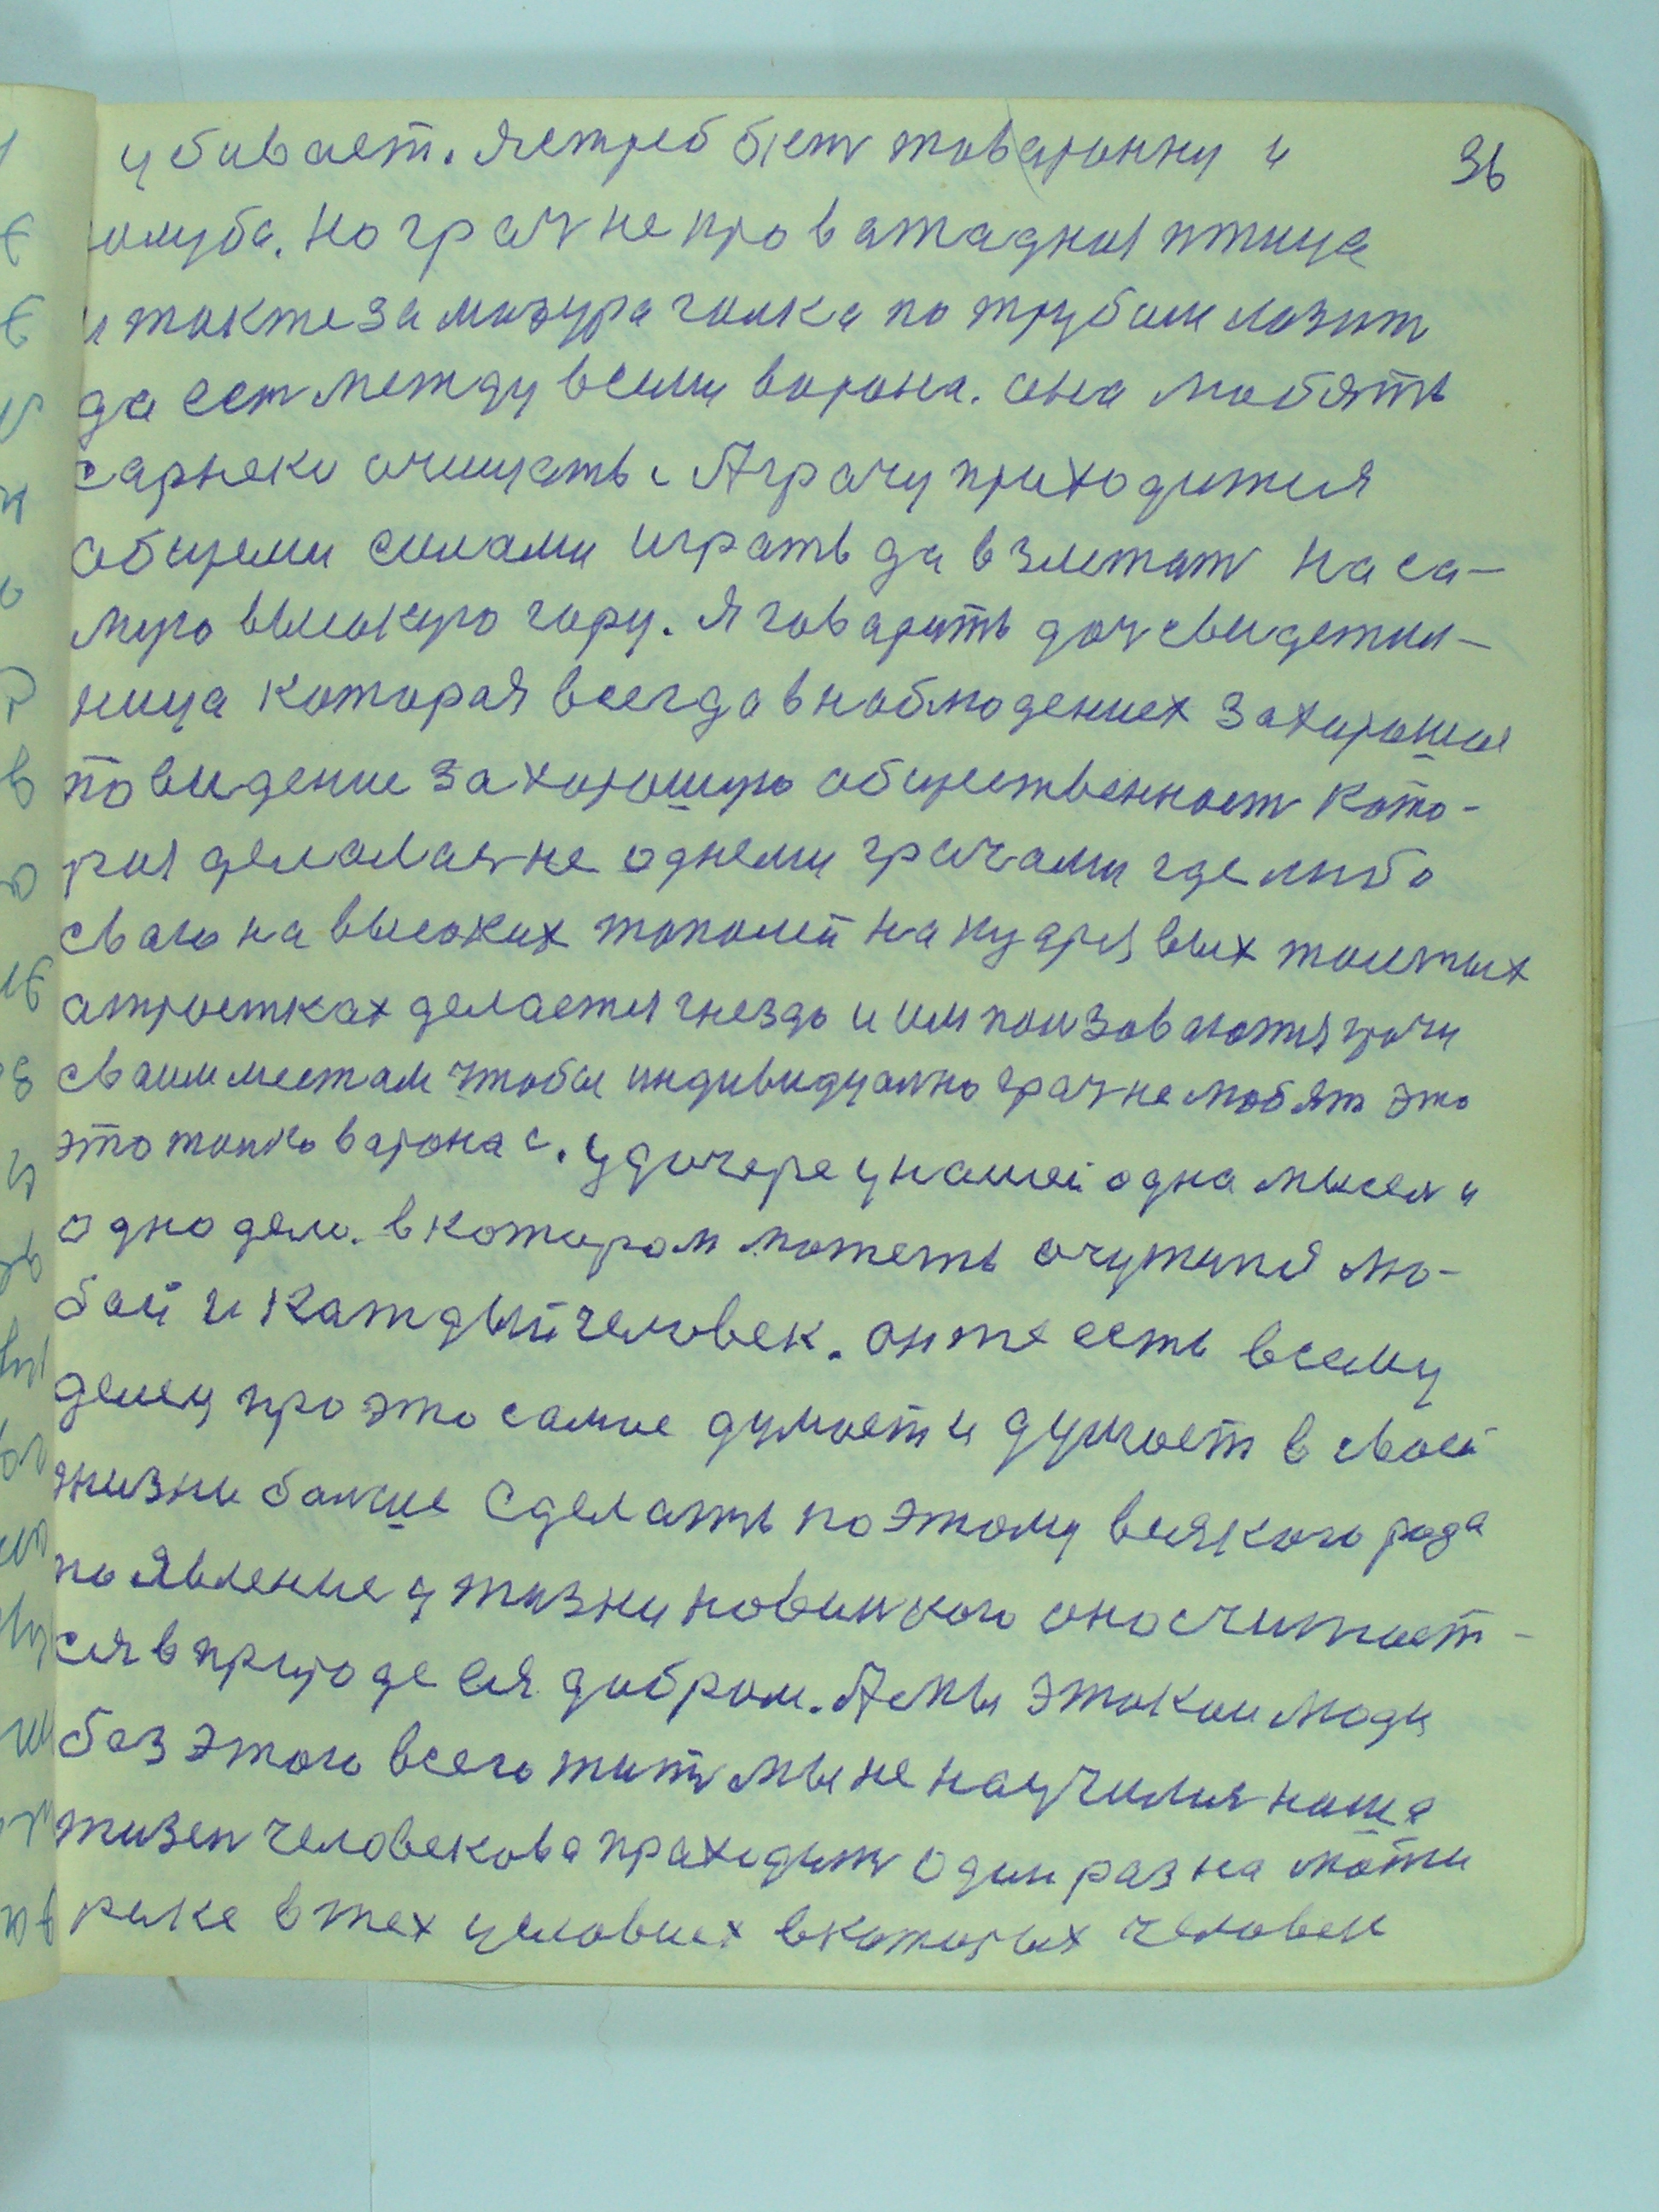 убивает. Ястреб бьет товаронну и 36
голуба. Но грач не проватадная птица
и такте за мазура галка по трубам лазит
да ест между всеми ворона. Она любять
сарняки очищать. А грачу приходится
общеми силами играть да взлетат на са-
мую высокую гору. Я говарить доч свидетил-
ница которая всегда в наблюдениех за харошое
повидение за хорошую общественност кото-
рая делалас не однеми грачами где либо
сваю на высоких тополей на кудрявых толстых
атростках делается гнездо и им ползоваются грачи
сваим местам чтобы индивидуално грач не любят это
это толко варона с. У дочере у нашей одна мысел и
одно дело. в котором можеть очутится лю-
бой и каждый человек. он же есть всему
делец про это самое думает и думает в своей
жизни болше сделать поэтому всякого рода
появление у жизни новинского оно считает-
ся в природе ся добром. А мы этакии люди
без этого всего жить мы не научился наша
жизен человекова праходит один раз на мати
рике в тех условиех в которых человек